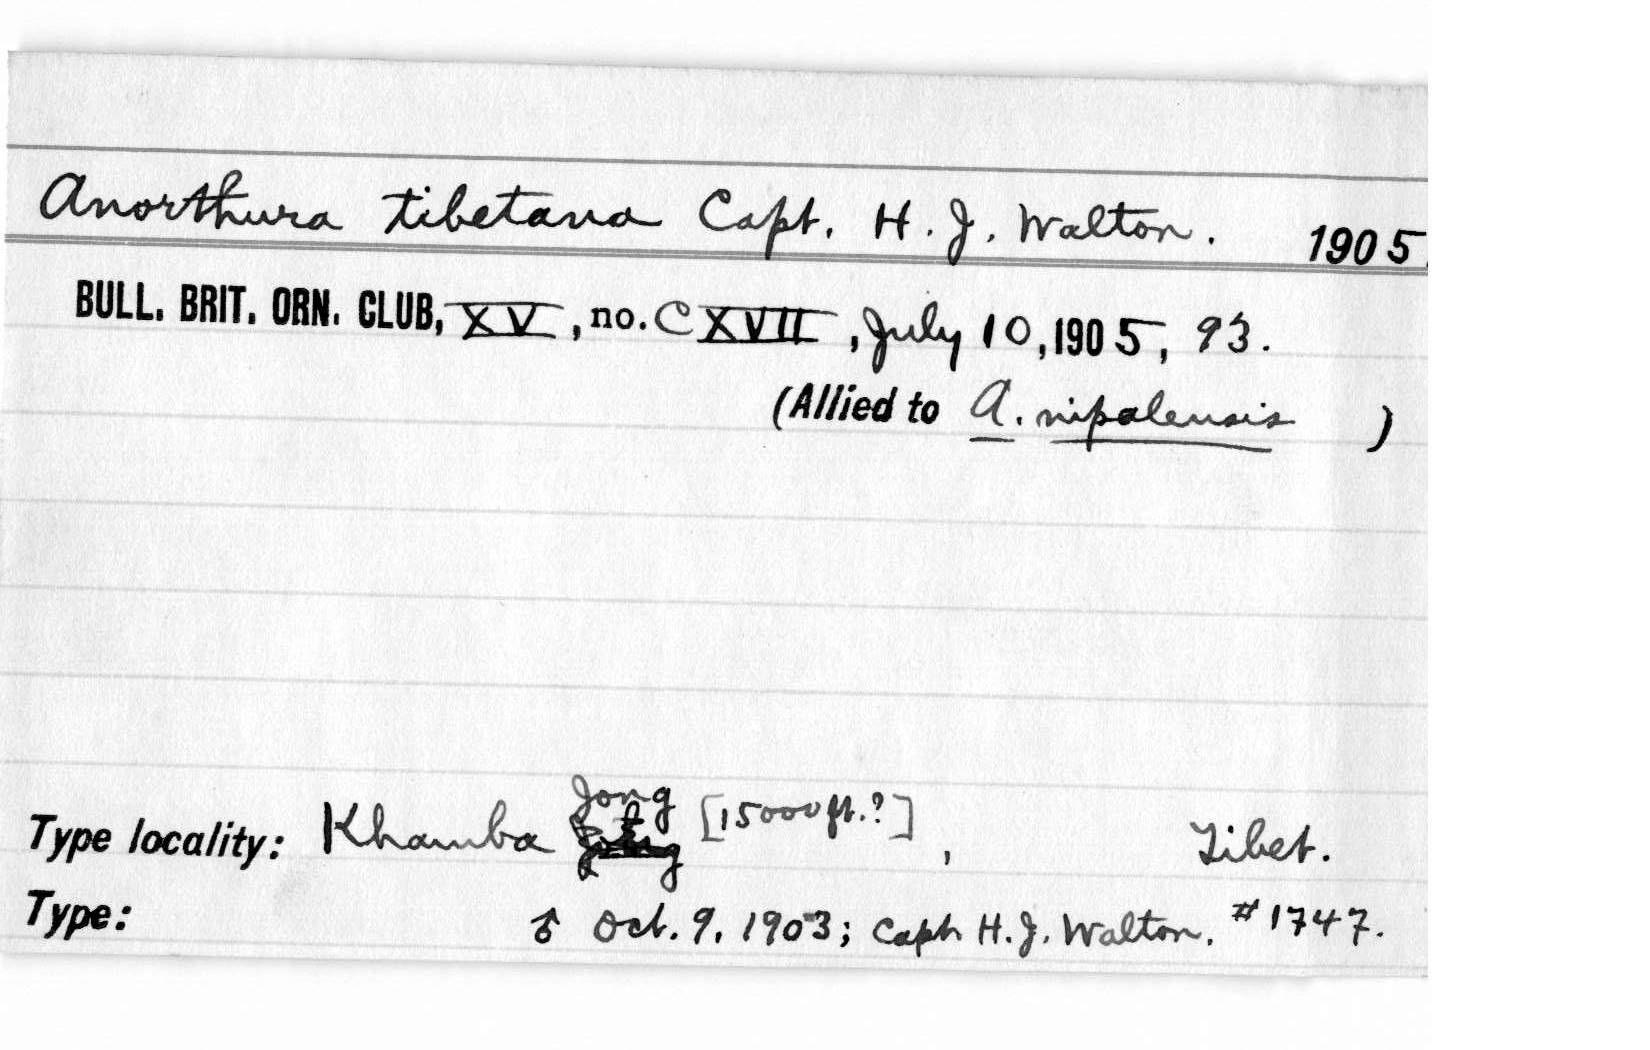 Anorthura tibetana Capt. H. J. Walton. 1905.
BULL. BRIT. ORN. CLUB, XV, no. CXVII, July 10, 1905, 93.
(Allied to A. nipalensis )
Type locality: Khamba Jong [15000 ft.?], Tibet.
Type: ♂ Oct. 9, 1903; Capt H. J. Walton. #1747.